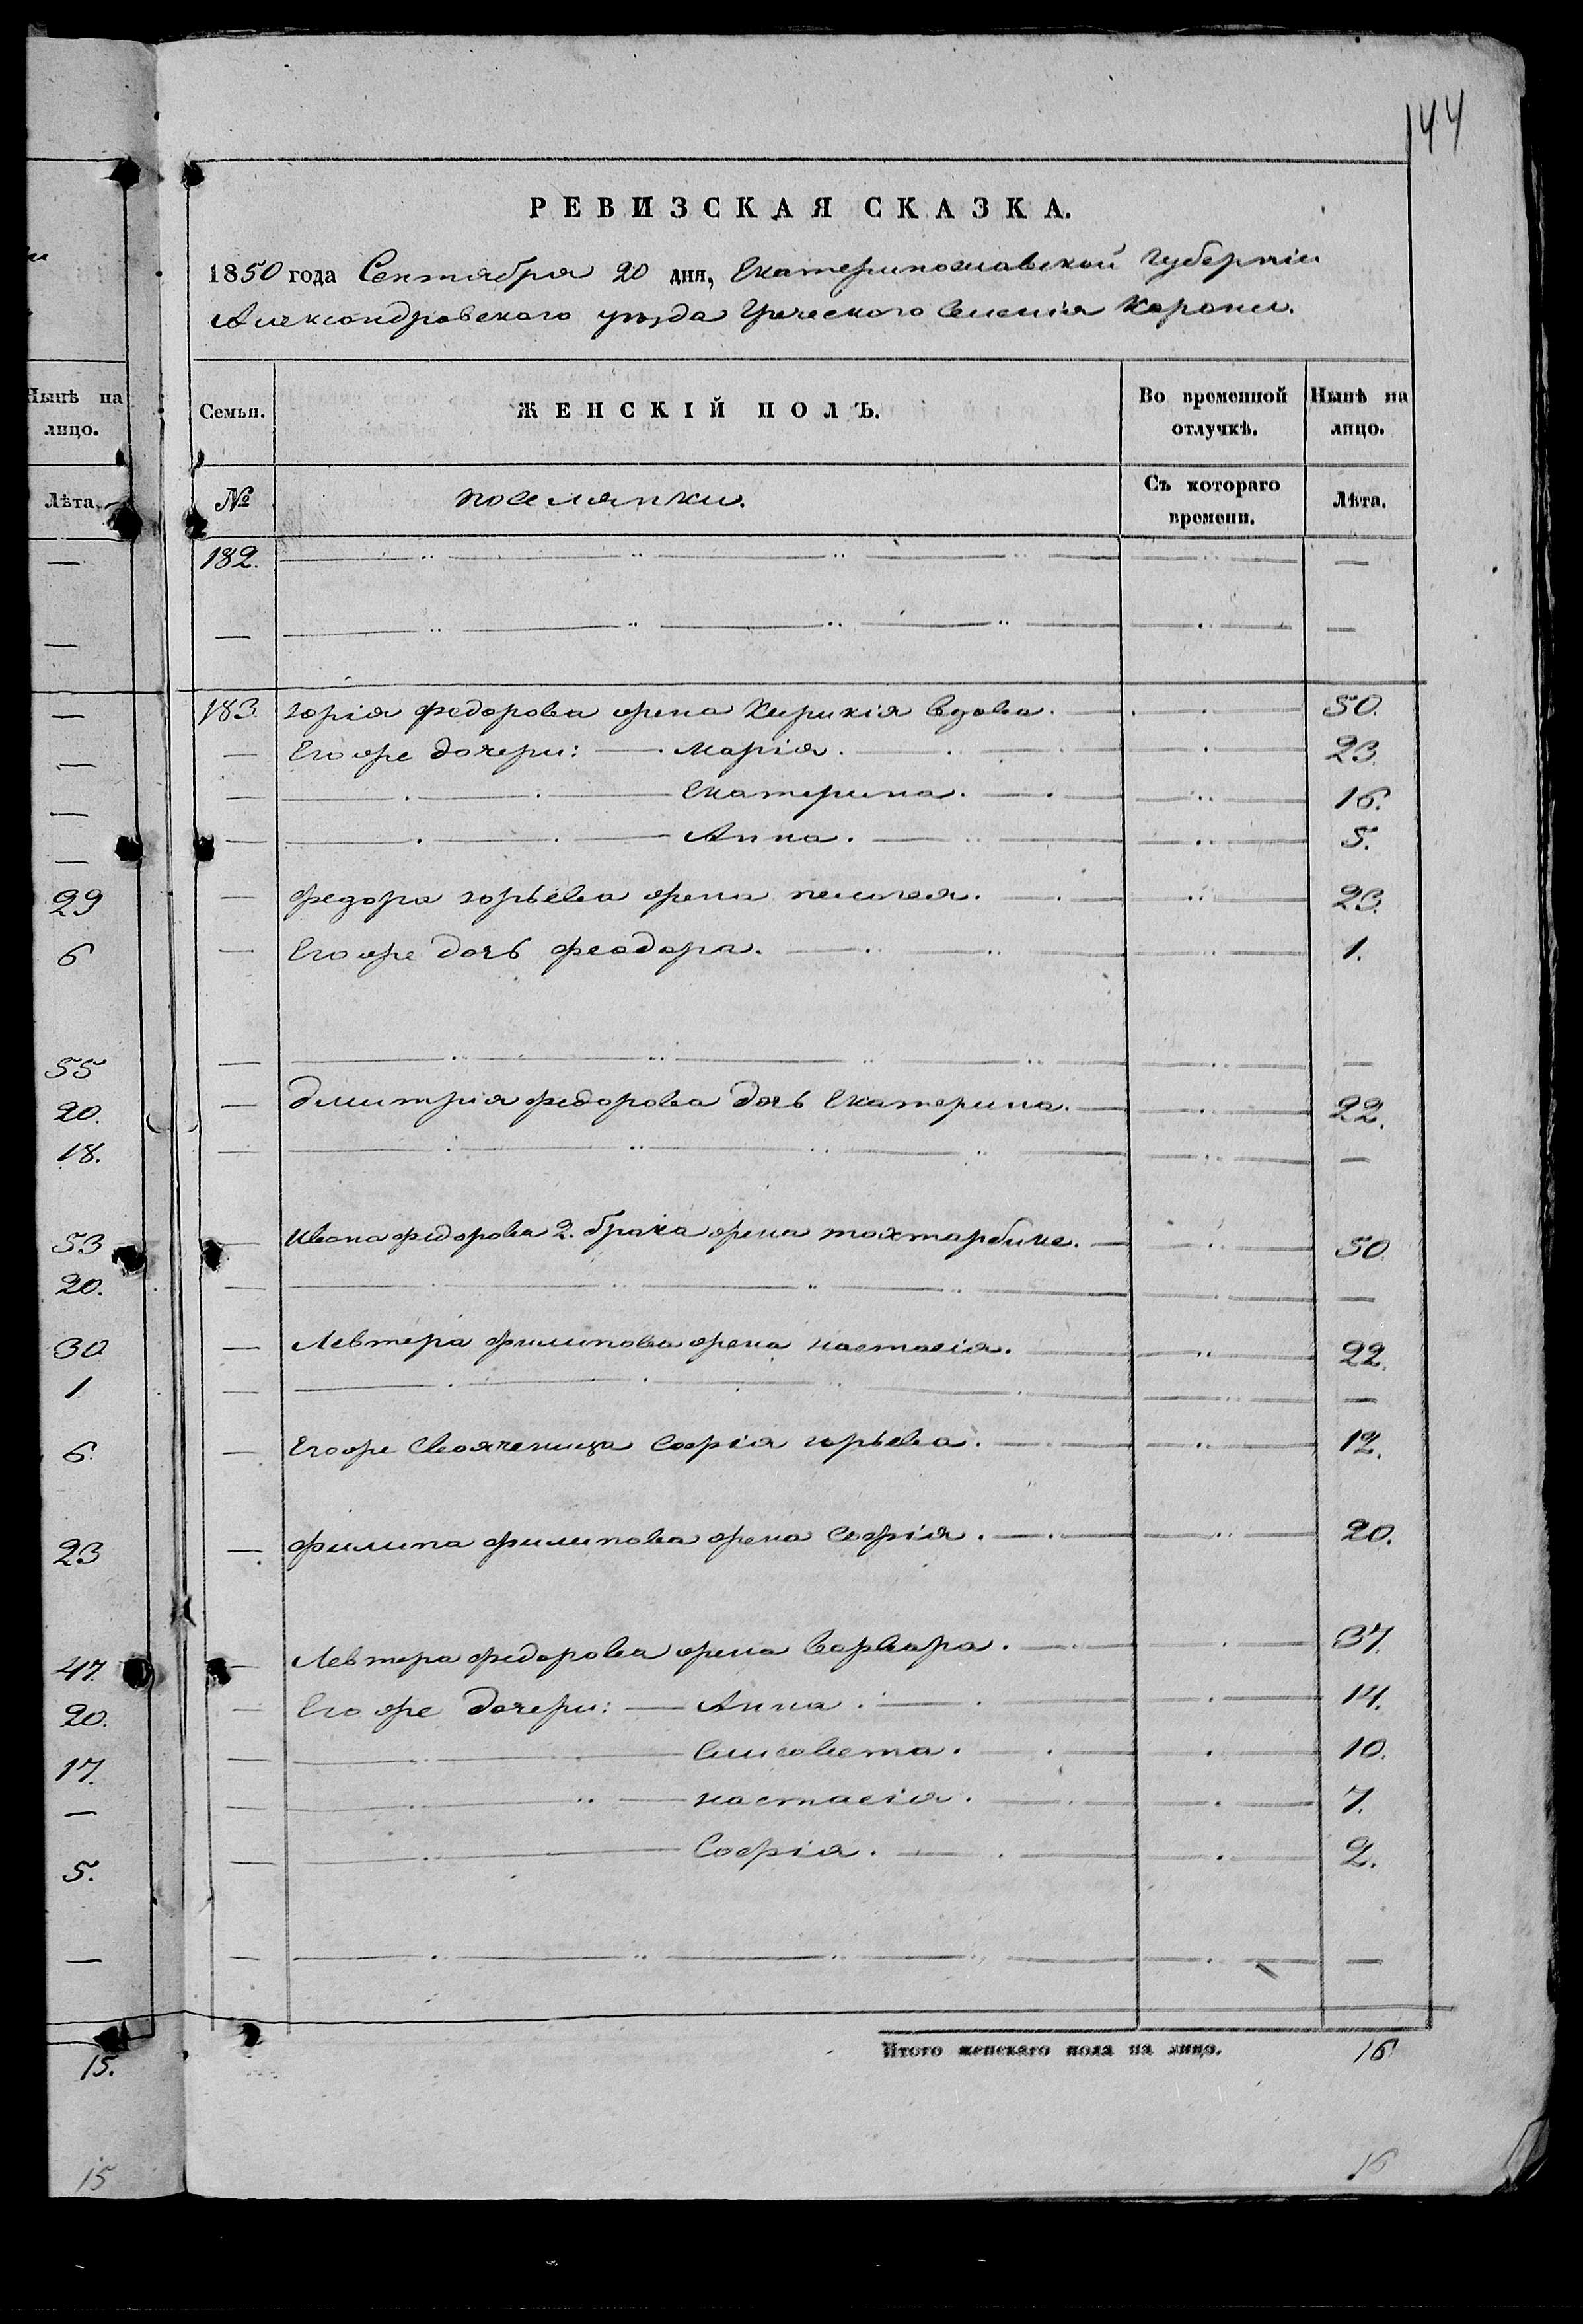 144
РЕВИЗСКАЯ СКАЗКА.
1850 года Сентября 20 дня, Екатеринославской Губерніи
Александровского уезда Греческого Селенія Карони.
Нынѣ на лицо.
Семьи.
ЖЕНСКІЙ ПОЛЪ.
Во временной отлучкѣ.
Нынѣ на лицо.
Лѣта.
№
поселянки.
Съ котораго времени.
Лѣта.
182.
183. Юрія Федорова жена Кирикія вдова. 50.
Его же дочери: Марія. 23.
Екатерина. 16.
Анна. 5.
29
Федора Юрьева жена Пелагея. 23.
6
Его же дочь Феодора. 1.
55
20.
Дмитрія Федорова дочь Екатерина. 22.
18.
53
Ивана Федорова 2. брака жена Тохтарбике. 50.
20.
30
Левтера Филипова жена Настасія. 22.
1.
6.
Его же Свояченица Софія Юрьева. 12.
23
Филипа Филипова жена Софія. 20.
47.
Левтера Федорова жена Варвара. 37.
20.
Его же дочери: Анна. 14.
17.
Елисавета. 10.
Настасія. 7.
5.
Софія. 2.
15.
Итого женскаго пола на лицо. 16
15
16